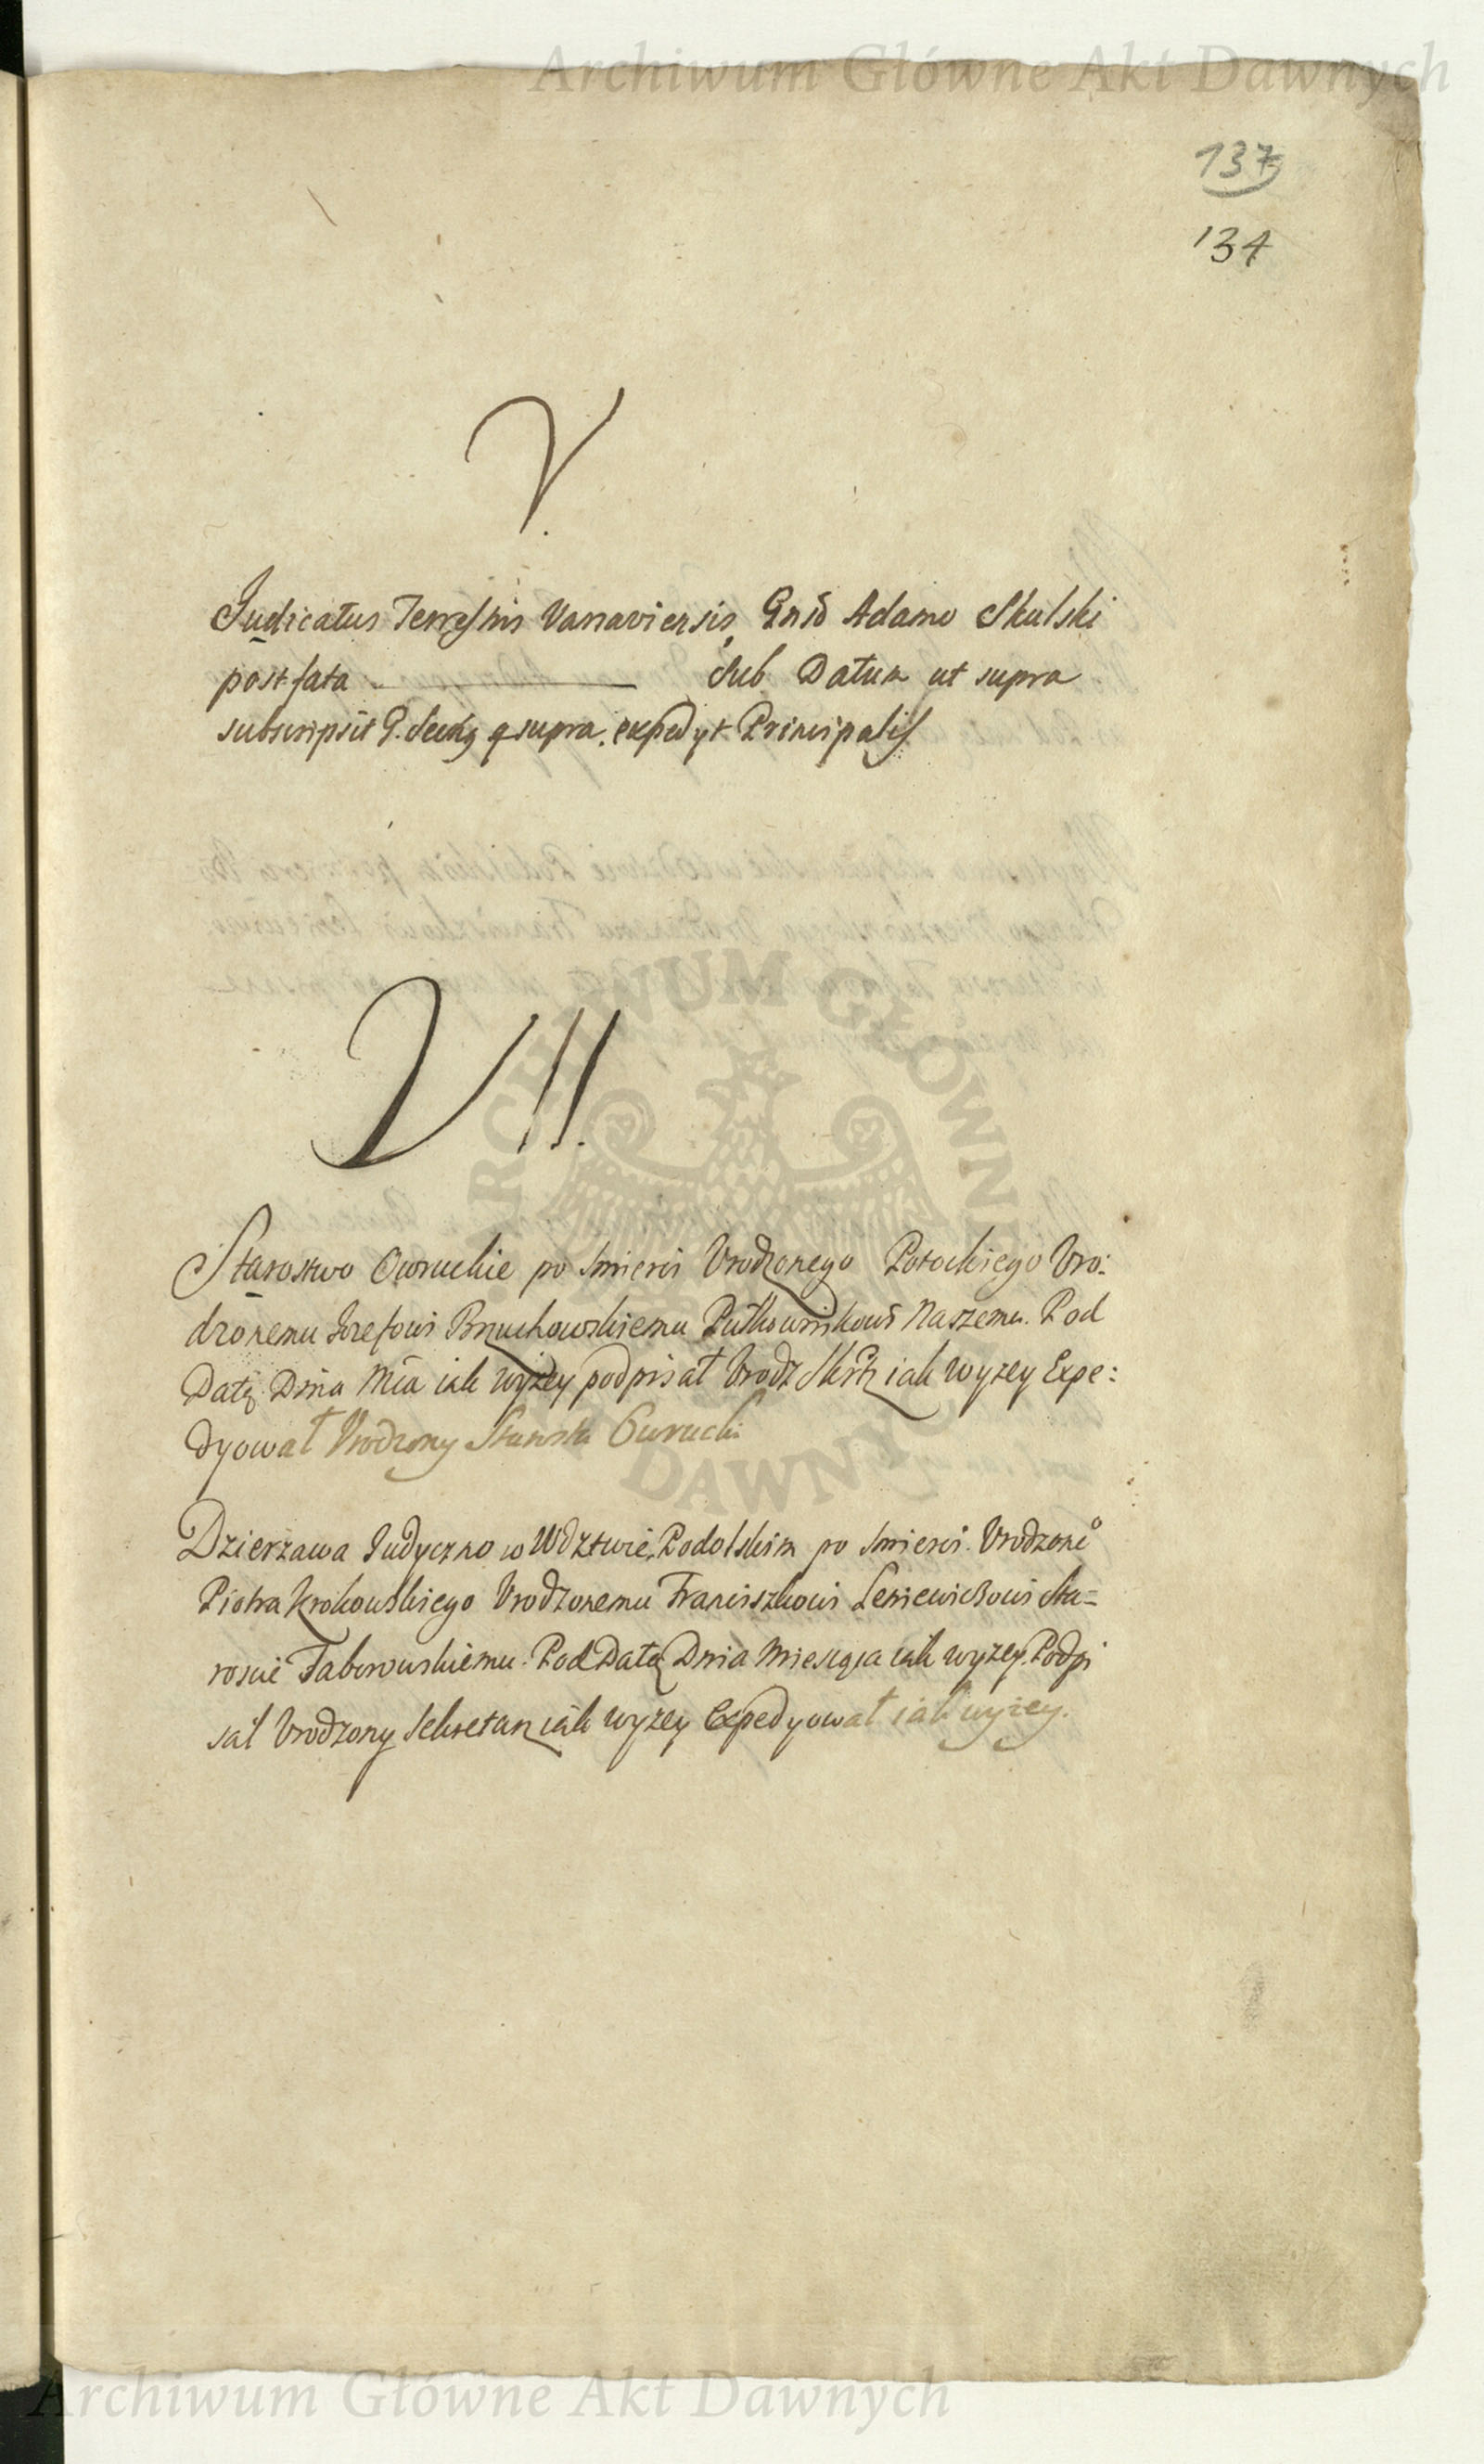 Archiwum Główne Akt Dawnych
137
134
V.
Judicatus Terrestris Varsaviensis, Gnso Adamo Skulski
post fata — Sub Datum ut supra
subscripsit G. Secrius q supra. expedyt Principalis
VII.
Starostwo Owruckie po smierci Urodzonego Potockiego Uro:
dzonemu Jozefowi Brzuchowskiemu Pułkownikowi Naszemu. Pod
Datą Dnia Mca iak wyżey podpisał Urodz Skrtz iak wyżey Expe:
dyował Urodzony Starosta Owrucki
Dzierżawa Judyczno w Wdztwie Podolskim po smierci Urodzone°
Piotra Krokowskiego Urodzonemu Franciszkowi Leniewiczowi Sta=
roscie Taborowskiemu. Pod Datą Dnia Miesiąca iak wyżey. Podpi
sał Urodzony Sekretarz iak wyżey Expedyował iak wyżey.
ARCHIWUM GŁÓWNE AKT DAWNYCH
Archiwum Główne Akt Dawnych